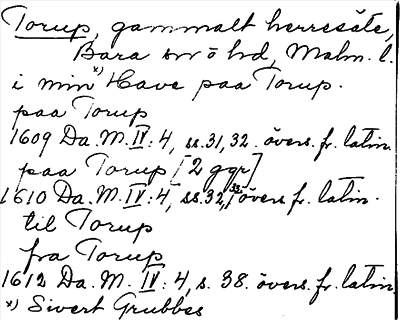 Torup, gammalt herresäte,
Bara sn o hd, Malm. l.
i min x) Have paa Torup.
paa Torup
1609 Da. M. IV: 4, ss. 31, 32. övers. fr. latin.
paa Torup [2 ggr]
1610 Da. M. IV: 4, ss. 32, 33, övers fr. latin.
til Torup
fra Torup
1612 Da. M. IV: 4, s. 38. övers. fr. latin
x) Sivert Grubbes